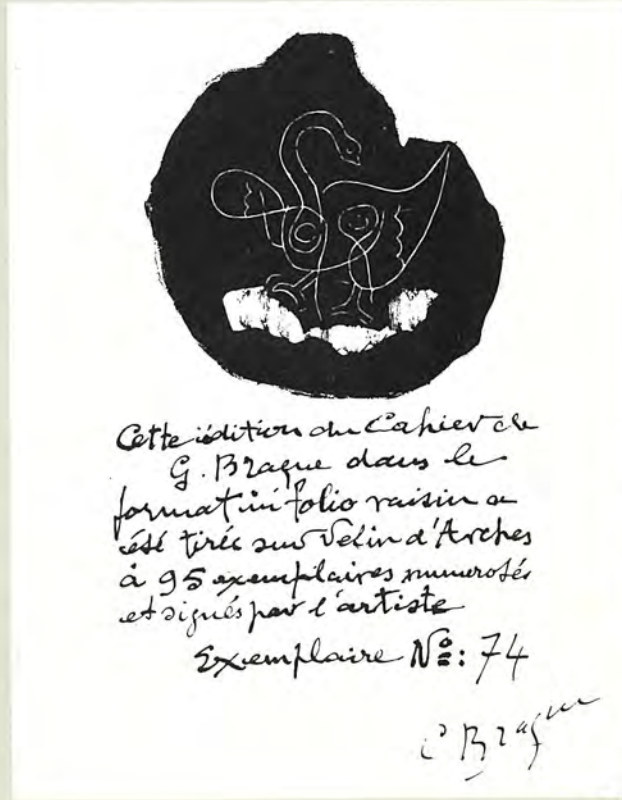 Cette édition du Cahier de
G. Braque dans le
format in folio raisin a
été tirée sur Vélin d'Arches
à 95 exemplaires numerotés
et signés par l'artiste
Exemplaire Nº: 74
G Braque